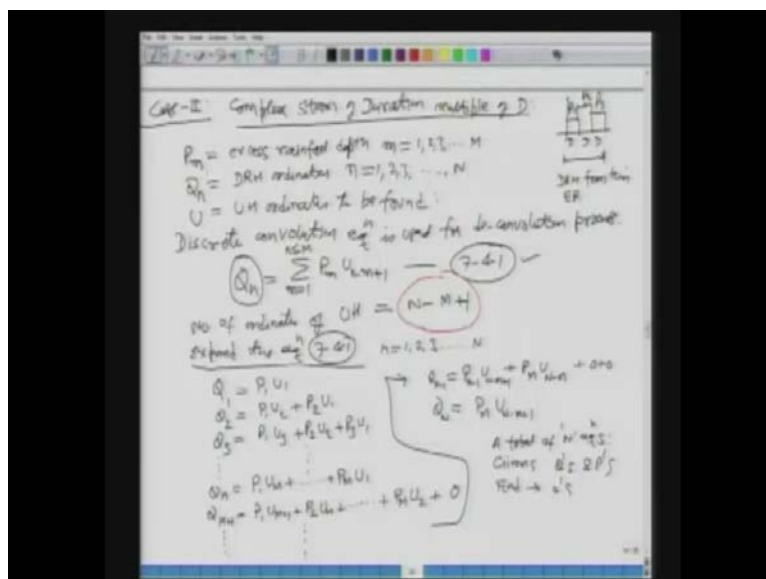 Case-II: Complex Storm of Duration multiple of D:
Pm = excess rainfall depth m = 1, 2, 3, ... M
Qn = DRH ordinates n = 1, 2, 3, ..., N
U = UH ordinates to be found:
D D D
DRH from this
ER
Discrete convolution eqn is used for de-convolution process.
Qn = Σ Pm Un-m+1 — 7-4-1 ✓
n≤M
m=1
No of ordinates of UH = N-M+1
expand the eqn 7-4-1 n = 1, 2, 3 .... N
Q1 = P1 U1
Q2 = P1 U2 + P2 U1
Q3 = P1 U3 + P2 U2 + P3 U1
QM = P1 UM + ...... + PM U1
QM+1 = P1 UM+1 + P2 UM + ...... + PM U2 + 0
QN-1 = PM-1 UN-M+1 + PM UN-M + 0+0
QN = PM UN-M+1
A total of 'N' eqns:
Given Q's & P's
Find → U's